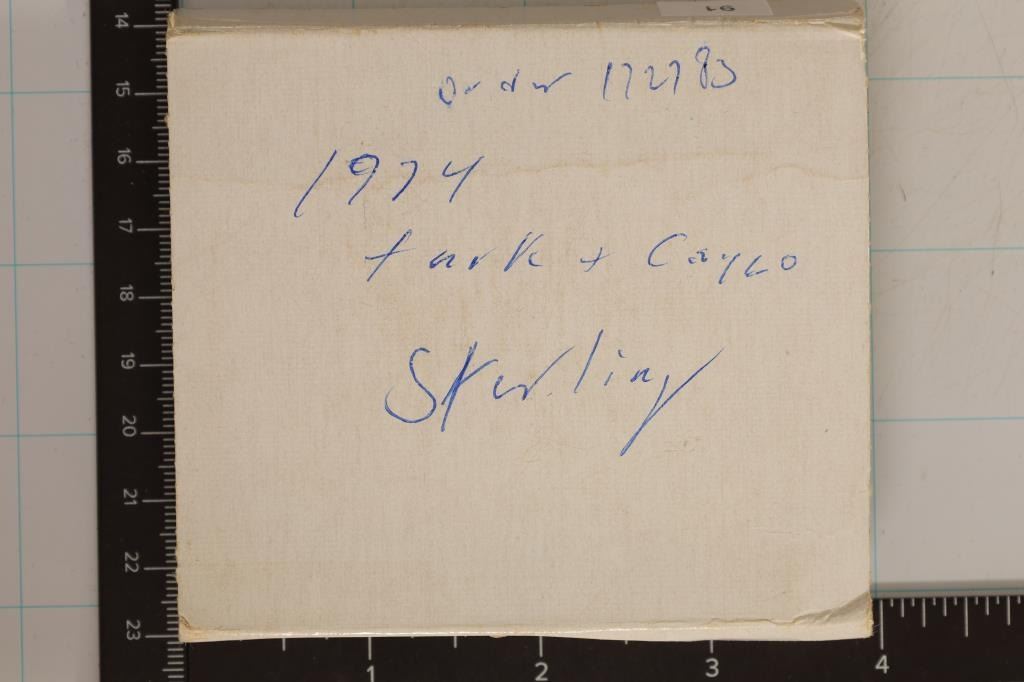 order 172783
1974
turk + Cayco
Sterling
91
14
15
16
17
18
19
20
21
22
23
1 2 3 4